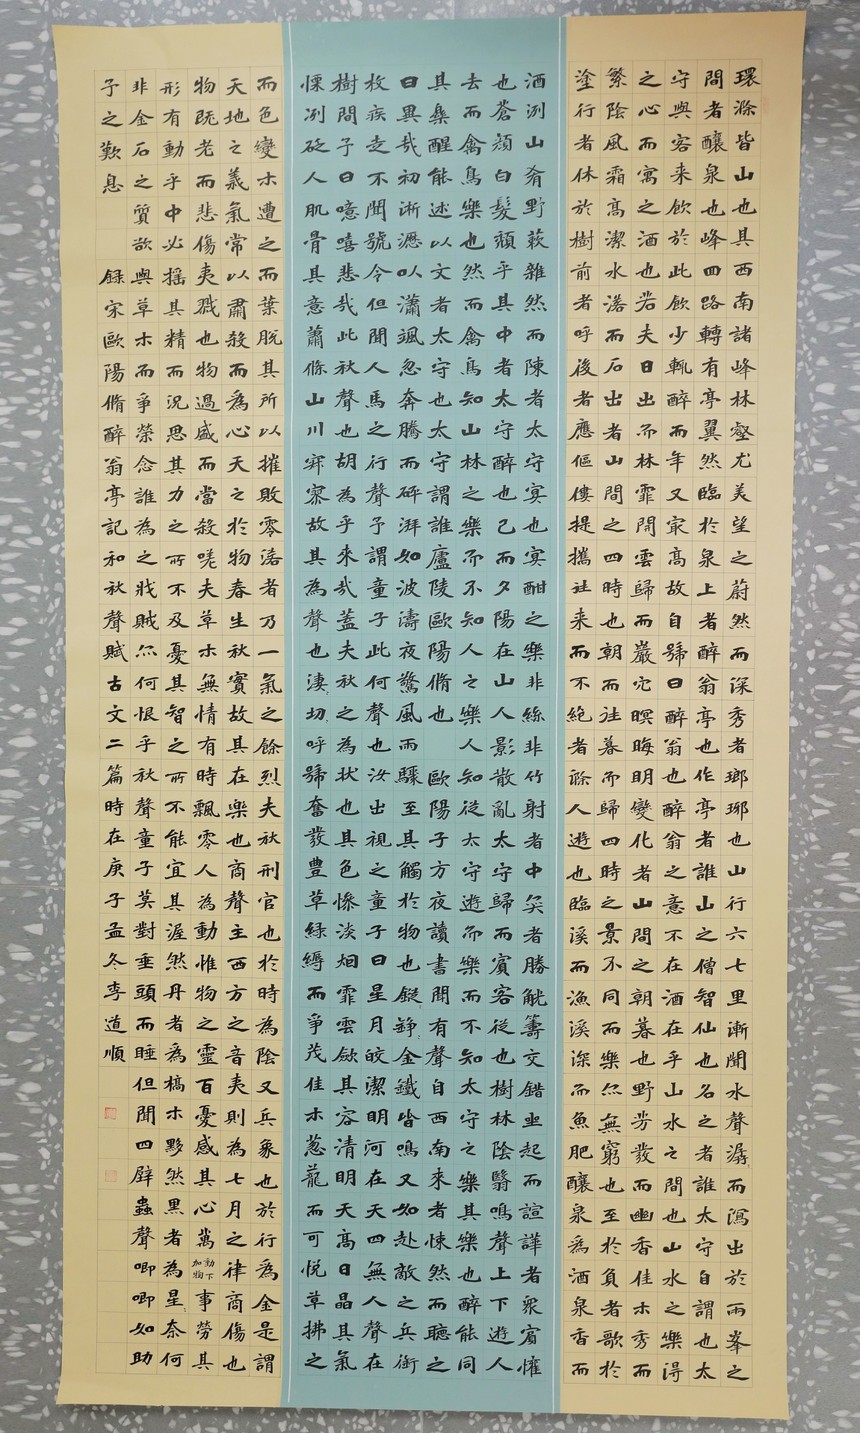 環滁皆山也其西南諸峰林壑尤美望之蔚然而深秀者瑯琊也山行六七里漸聞水聲潺而瀉出於兩峯之
間者釀泉也峰回路轉有亭翼然臨於泉上者醉翁亭也作亭者誰山之僧智仙也名之者誰太守自謂也太
守與客來飲於此飲少輒醉而年又冣高故自號曰醉翁也醉翁之意不在酒在乎山水之間也山水之樂得
之心而寓之酒也若夫日出而林霏開雲歸而巖穴暝晦明變化者山間之朝暮也野芳發而幽香佳木秀而
繁陰風霜高潔水落而石出者山間之四時也朝而往暮而歸四時之景不同而樂亦無窮也至於負者歌於
塗行者休於樹前者呼後者應傴僂提攜往来而不絕者滁人遊也臨溪而漁溪深而魚肥釀泉為酒泉香而
酒洌山肴野蔌雜然而陳者太守宴也宴酣之樂非絲非竹射者中奕者勝觥籌交錯坐起而諠譁者衆賓懽
也蒼顏白髮頹乎其中者太守醉也已而夕陽在山人影散亂太守歸而賓客從也樹林陰翳鳴聲上下遊人
去而禽鳥樂也然而禽鳥知山林之樂而不知人之樂人知從太守遊而樂而不知太守之樂其樂也醉能同
其樂醒能述以文者太守也太守謂誰廬陵歐陽脩也 歐陽子方夜讀書聞有聲自西南來者悚然而聽之
曰異哉初淅瀝以瀟颯忽奔騰而砰湃如波濤夜驚風雨驟至其觸於物也鏦錚金鐵皆鳴又如赴敵之兵銜
枚疾走不聞號令但聞人馬之行聲予謂童子此何聲也汝出視之童子曰星月皎潔明河在天四無人聲在
樹間子曰噫嘻悲哉此秋聲也胡為乎來哉蓋夫秋之為狀也其色慘淡烟霏雲歛其容清明天高日晶其氣
慄冽砭人肌骨其意蕭條山川寂寥故其為聲也淒切呼號奮發豐草綠縟而爭茂佳木葱蘢而可悅草拂之
而色變木遭之而葉脫其所以摧敗零落者乃一氣之餘烈夫秋刑官也於時為陰又兵象也於行為金是謂
天地之義氣常以肅殺而為心天之於物春生秋實故其在樂也商聲主西方之音夷則為七月之律商傷也
物既老而悲傷夷戮也物過盛而當殺嗟夫草木無情有時飄零人為動惟物之靈百憂感其心萬動下加物事勞其
形有動乎中必搖其精而況思其力之所不及憂其智之所不能宜其渥然丹者為槁木黟然黑者為星奈何
非金石之質欲與草木而爭榮念誰為之戕賊亦何恨乎秋聲童子莫對垂頭而睡但聞四壁蟲聲唧唧如助
子之歎息 錄宋歐陽脩醉翁亭記和秋聲賦古文二篇時在庚子孟冬李道順